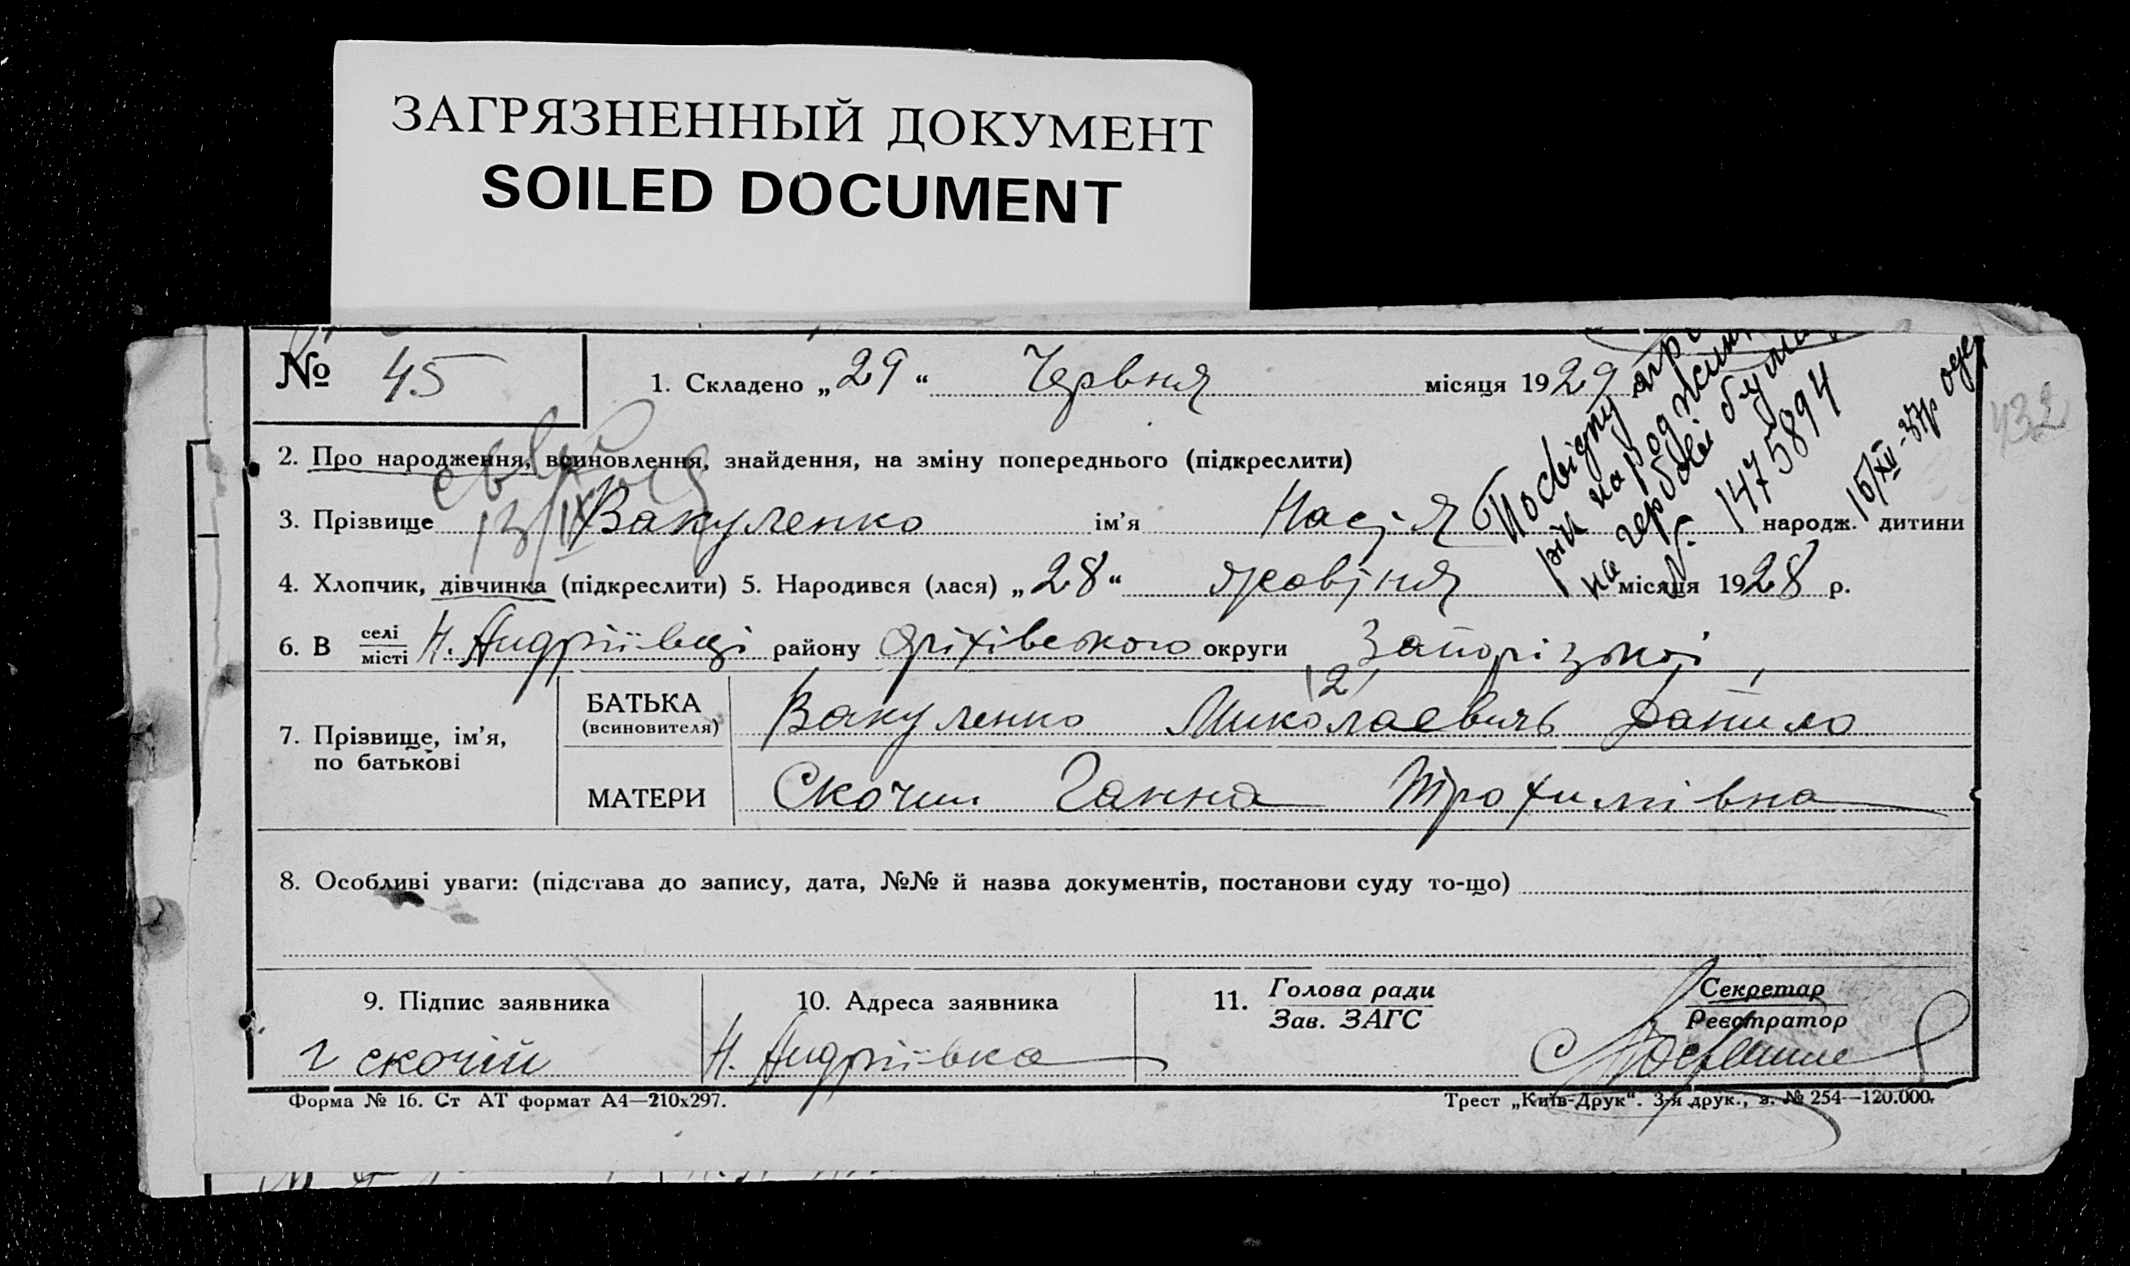 ЗАГРЯЗНЕННЫЙ ДОКУМЕНТ
SOILED DOCUMENT
№ 45
1. Складено „29“ Червня місяця 1929
432
2. Про народження, всиновлення, знайдення, на зміну попереднього (підкреслити)
3. Прізвище Вакуленко ім’я Насця народж. дитини
13/IX
Посвідку про
на гербовій бумазі
№. 1475894
15/XII-37р
4. Хлопчик, дівчинка (підкреслити) 5. Народився (лася) „28“ жовтня місяця 1928 р.
6. В селі/місті Н. Андріївці району Оріхівського округи Запорізької
7. Прізвище, ім’я, по батькові
БАТЬКА (всиновителя) Вакуленко Миколаевичь Данило
МАТЕРИ Скочий Ганна Трохимівна
8. Особливі уваги: (підстава до запису, дата, №№ й назва документів, постанови суду то-що)
9. Підпис заявника
г скочій
10. Адреса заявника
Н. Андріівка
11. Голова ради
Зав. ЗАГС
Секретар
Реєстратор
Форма № 16. Ст АТ формат А4—210х297.
Трест „Київ-Друк“. 3-я друк., з. № 254—120.000.